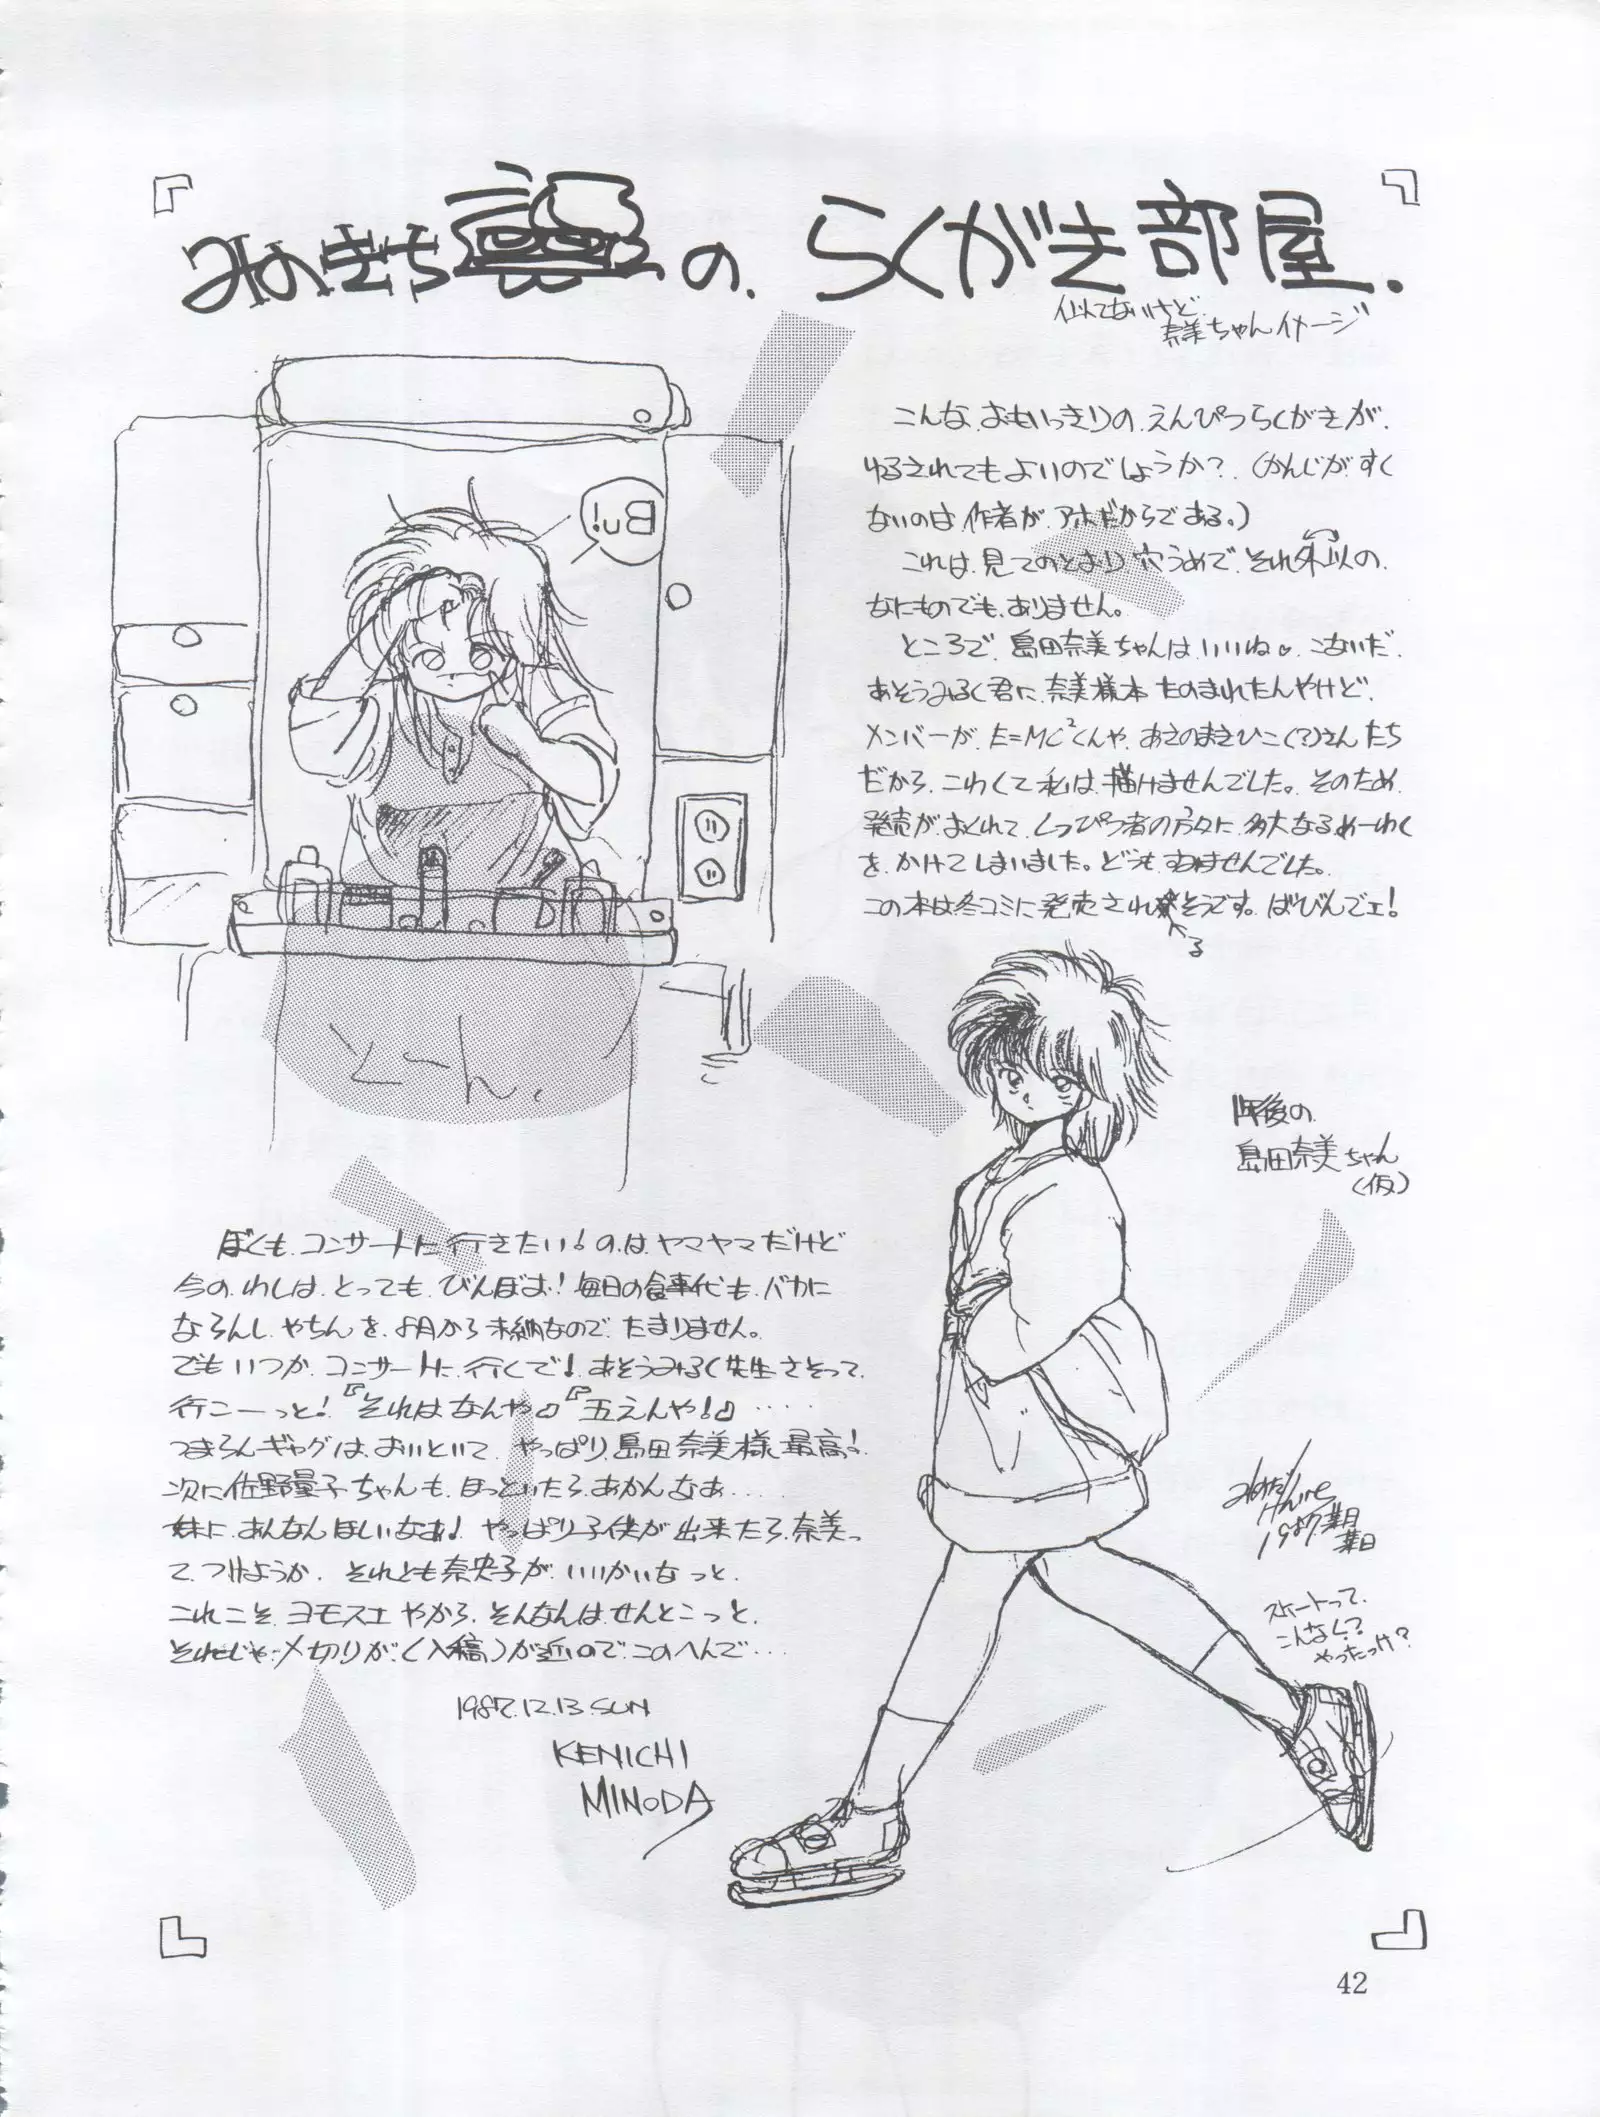 みのきち の、らくがき部屋.
似てないけど.
奈美ちゃんイメージ
こんな、おもいっきりの、えんぴつらくがきが、
ゆるされてもよいのでしょうか?.(かんじが、すく
ないのは作者が、アホだからである。)
これは、見てのとおり穴うめで、それ外以の、
なにものでも、ありません。
ところで、島田奈美ちゃんは、いいね♡、こないだ、
あそうみるく君に、奈美様本たのまれたんやけど、
メンバーが、E=MC²くんや、あさのまさひこ(?)さんたち
だから、こわくて私は、描けませんでした。そのため、
発売が、おくれて、しっぴつ者の方々に、多大なるめーわく
を、かけてしまいました。どうもすみませんでした。
この本は冬コミに発売されそうです。ばびんでェ!
る
Bu!
とーん、
年後の、
島田奈美ちゃん
(仮)
ぼくも、コンサートに行きたい!の、は、ヤマヤマだけど
今の、わしは、とっても、びんぼお!毎日の食事代も、バカに
ならんし、やちんを、8月から未納なので、たまりません。
でもいつか、コンサートに、行くで!あそうみるく先生さそって、
行こーっと!『それはなんや♪』『五えんや!♪』‥‥
つまらんギャグは、おいといて、やっぱり、島田奈美様、最高!
次に佐野量子ちゃんも、ほっといたら、あかんなあ‥‥
妹に、あんなんほしいなぁ!やっぱり子供が出来たら、奈美っ
て、つけようか、それとも奈央子が、いいかいなっと、
これこそ、ヨモスエやから、そんなんは、せんとこっと、
それじゃ〆切りが、(入稿)が近いので、このへんで‥‥
1987.12.13.SUN
KENICHI
MINODA
1987
スケートって、
こんなく?
やったっけ?
42